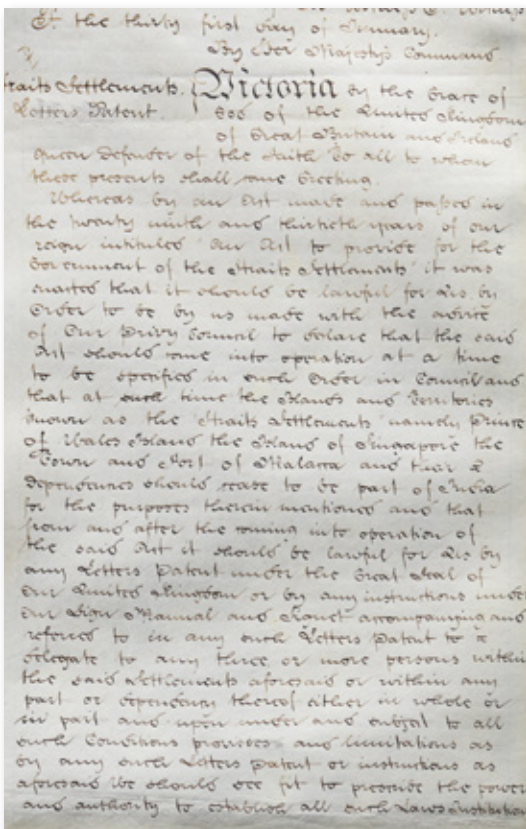 Of the thirty first day of January.
By Her Majesty's Command
Straits Settlements. Victoria by the Grace of
Letters Patent. God of the United Kingdom
of Great Britain and Ireland
Queen Defender of the Faith To all to whom
these presents shall come Greeting.
Whereas by an Act made and passed in
the twenty ninth and thirtieth years of our
reign intituled "An Act to provide for the
Government of the Straits Settlements" it was
enacted that it should be lawful for Us by
Order to be by us made with the advice
of Our Privy Council to declare that the said
Act should come into operation at a time
to be specified in such Order in Council and
that at such time the Islands and Territories
known as the "Straits Settlements" namely Prince
of Wales Island the Island of Singapore the
Town and Port of Malacca and their
dependencies should cease to be part of India
for the purposes therein mentioned and that
from and after the coming into operation of
the said Act it should be lawful for Us by
any Letters Patent under the Great Seal of
Our United Kingdom or by any instructions under
Our Sign Manual and Signet accompanying and
referred to in any such Letters Patent to
delegate to any three or more persons within
the said Settlements aforesaid or within any
part or dependency thereof either in whole or
in part and upon under and subject to all
such Conditions provisoes and limitations as
by any such Letters Patent or instructions as
aforesaid We should see fit to prescribe the power
and authority to establish all such Laws Institution